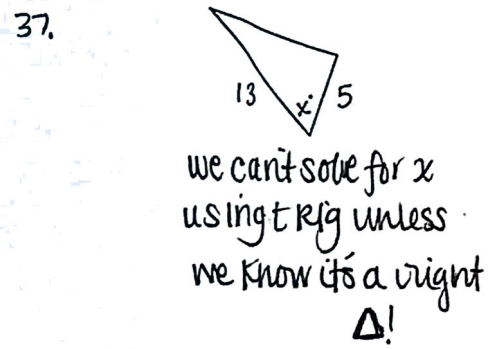 37.
13 x° 5
we can't solve for x
using trig unless
we know it's a right
Δ!